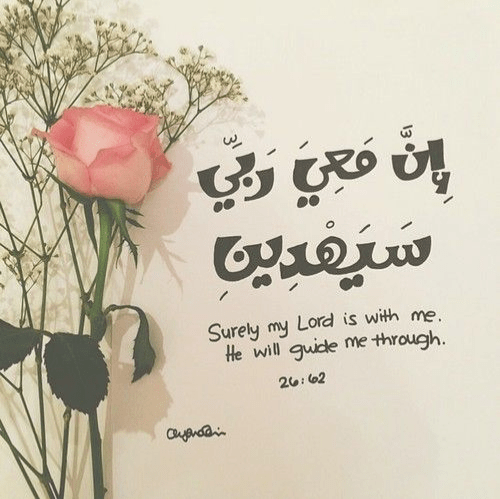 إِنَّ مَعِيَ رَبِّي
سَيَهْدِينِ
Surely my Lord is with me.
He will guide me through.
26:62